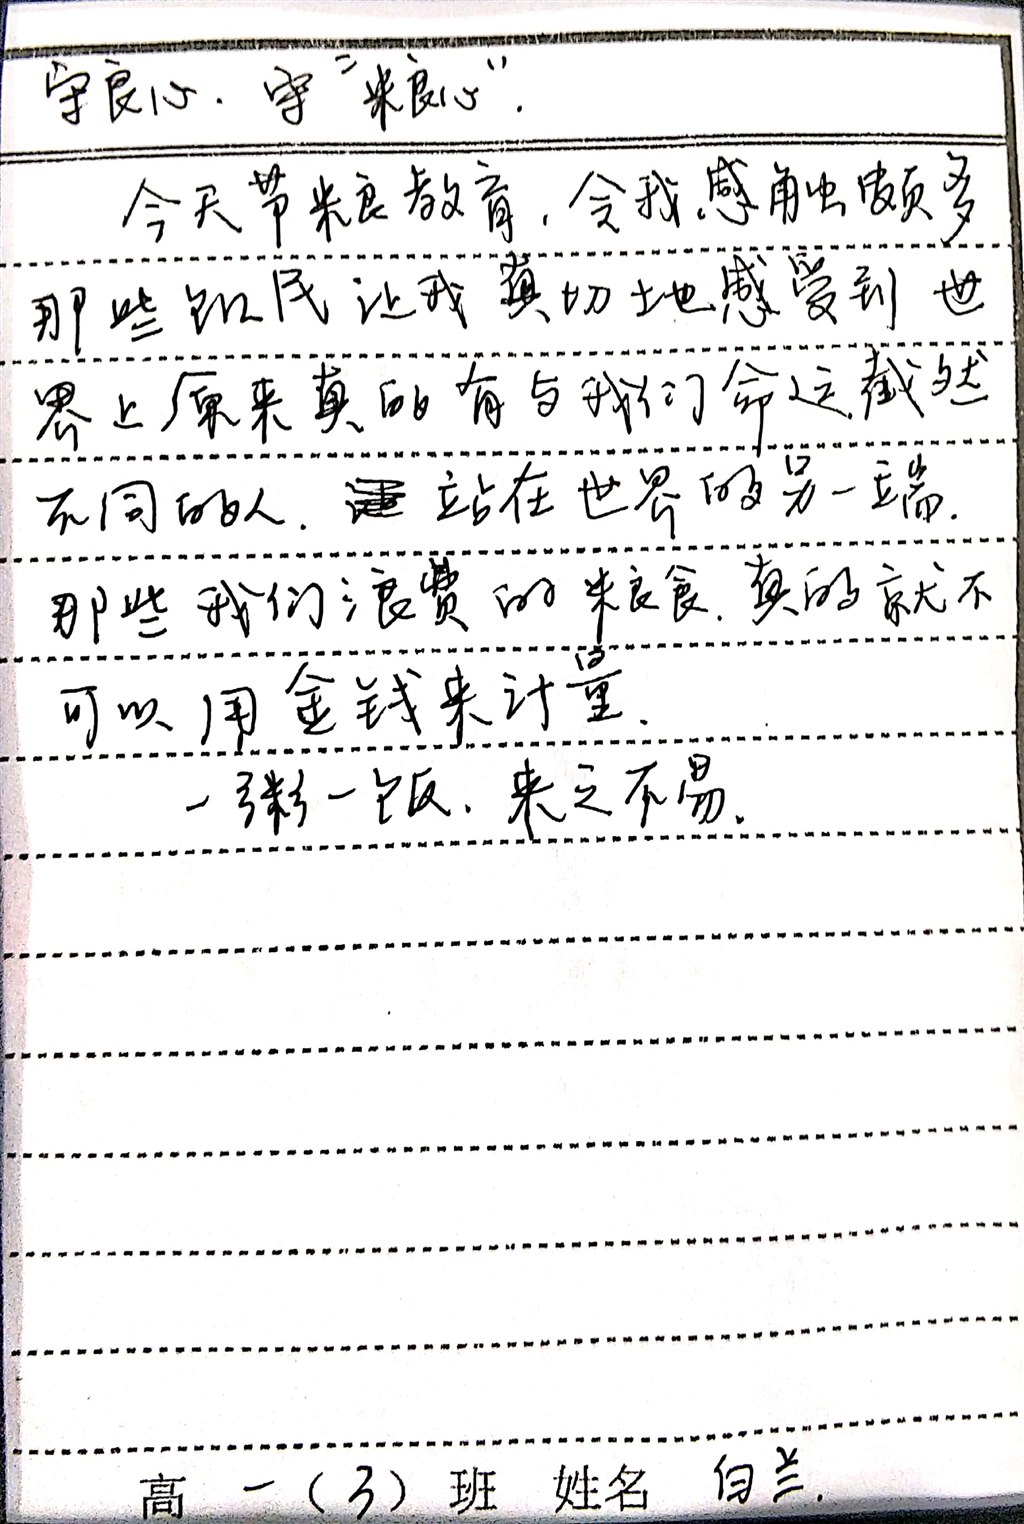 守良心.守“粮心”.
今天节粮教育,令我感触颇多
那些饥民让我真切地感受到世
界上原来真的有与我们命运截然
不同的人.站在世界的另一端.
那些我们浪费的粮食.真的就不
可以用金钱来计量.
一粥一饭.来之不易.
高一(3)班 姓名 白兰.